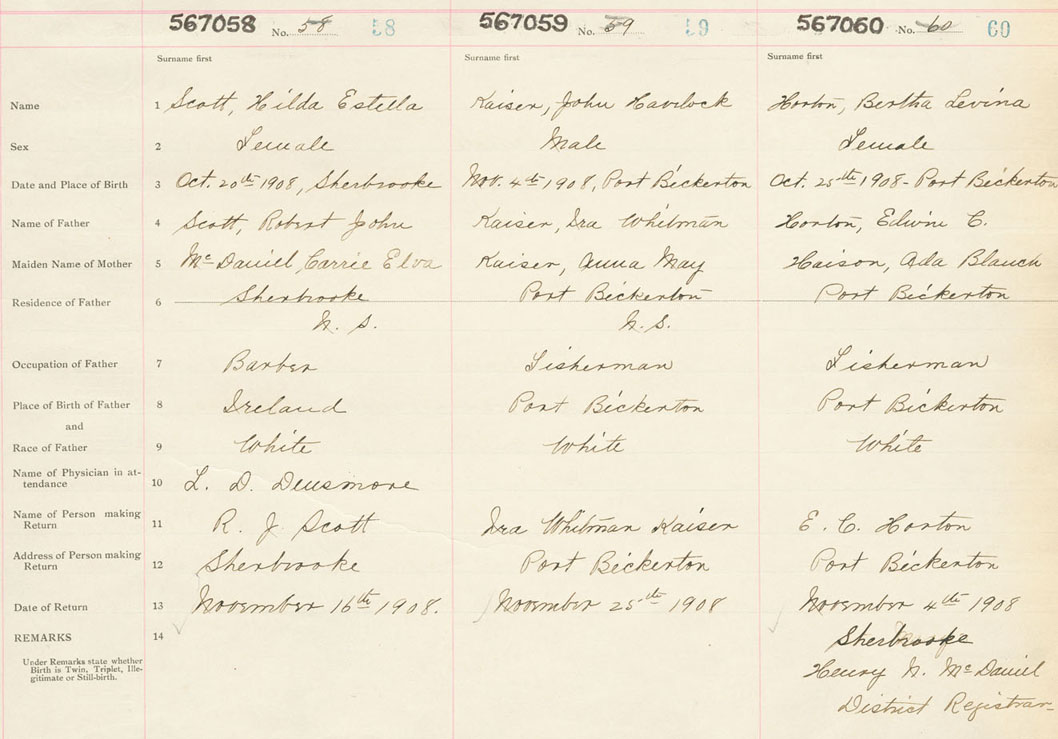 567058 No. 58 58 567059 No. 59 59 567060 No. 60 60
Surname first Surname first Surname first
Name 1 Scott, Hilda Estella Kaiser, John Havilock Horton, Bertha Levina
Sex 2 Female Male Female
Date and Place of Birth 3 Oct. 20th 1908, Sherbrooke Nov. 4th 1908, Port Bickerton Oct. 25th 1908 - Port Bickerton
Name of Father 4 Scott, Robert John Kaiser, Ira Whitman Horton, Edwin C.
Maiden Name of Mother 5 McDaniel, Carrie Elva Kaiser, Anna May Haison, Ada Blanch
Residence of Father 6 Sherbrooke Port Bickerton Port Bickerton
N. S. N. S.
Occupation of Father 7 Barber Fisherman Fisherman
Place of Birth of Father 8 Ireland Port Bickerton Port Bickerton
and
Race of Father 9 White White White
Name of Physician in at-
tendance 10 L. D. Densmore
Name of Person making
Return 11 R. J. Scott Ira Whitman Kaiser E. C. Horton
Address of Person making
Return 12 Sherbrooke Port Bickerton Port Bickerton
Date of Return 13 November 16th 1908. November 25th 1908 November 4th 1908
REMARKS 14 Sherbrooke
Under Remarks state whether
Birth is Twin, Triplet, Ille-
gitimate or Still-birth.
Henry N. McDaniel
District Registrar